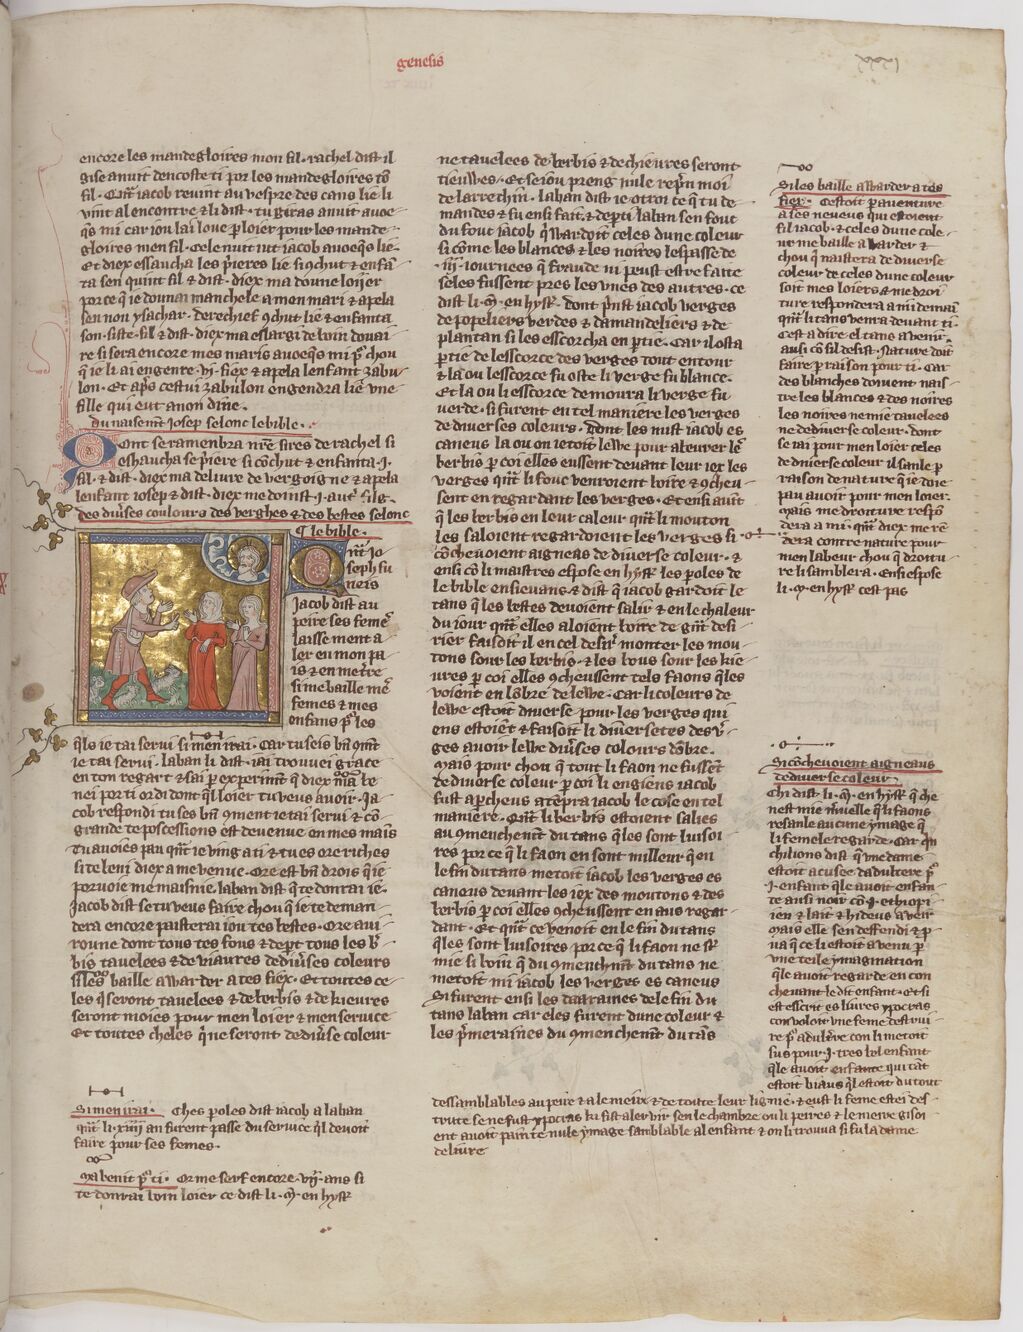 genesis
encore les mandegloires mon fil. rachel dist il
gise anuit dencoste ti por les mandegloires tō
fil. Qm̄t iacob reuint au vespre des cans lie li
vint al encontre & li dist. tu giras anuit auoec
q̄s mi car iou lai loue ꝑ loier pour les mande
gloires men fil. cele nuit iut iacob auoeq̄s lie.
Et diex essaucha les p̄ieres lie si ꝯchut & enfā
ta sen quint fil & dist. diex ma doune loiier
por ce q̄ ie dounai manchele a mon mari & apela
sen non ysachar. derechief ꝯchut lie & enfanta
son siste fil & dist. diex ma eslargi de boin douai
re si sera encore mes maris auoeqs mi p̄ chou
q̄ ie li ai engenre .vj. fiex & apela lenfant zabu
lon. Et ap̄s cestui zabulon engendra lie vne
fille qui eut a non dine.
du naisem̄t iosep selonc le bible.
Dont se ramenbra nr̄e sires de rachel si
eshaucha se p̄iere si cōchut & enfanta .j.
fil & dist. diex ma deliure de vergoigne & apela
lenfant iosep & dist. diex me doinst .j. aut̄ filg.
des diu̾ses coulours des verghes & des bestes selonc
le bible.
Qm̄t io
seph fu
neis
Jacob dist au
peire ses femē
laisse ment a
ler en mon pa
is & en me tr̄e
si me baille mē
femes & mes
enfans p̄ les
q̄ls ie tai serui si men irai. Car tu seis bn̄ qm̄t
ie tai serui. laban li dist. iai trouuei grace
en ton regart & sai ꝑ experimēt q̄ diex ma be
nei por ti or di dont q̄l loier tu veus auoir. Ja
cob respondi tu ses bn̄ ꝯment ie tai serui & cō
grande te poscessions est deuenue en mes mais
tu auoies pau qm̄t ie ving a ti & tu es ore riches
li te beni diex a me venue. Ore est bn̄ drois q̄ ie
poruoie me maisnie. laban dist q̄ te donrai ie.
Jacob dist se tu veus faire chou q̄ ie te deman
dera encore paisterai iou tes bestes. Ore aui
roune dont tous tes fous & dep̄t tous les b̄
bis tauelees & de viaures de diu̾ses coleurs
si les baille a warder a tes fiex. Et toutes ce
les q̄ seront tauelees & de berbis & de kieures
seront moies pour men loier & men seruice
Et toutes cheles q̄ ne seront de diu̾se coleur
Si men irai. Ches poles dist iacob a laban
qm̄t li .xiiij. an furent passe du seruice q̄l deuoit
faire pour ses femes.
Ma benit p̄ ti. Or me serf encore .vij. ans si
te donrai boin loier ce dist li .m. en hystr̄
ne tauelees de berbis & de chieures seront
tieuwes. Et se iou preng nule rep̄n moi
de larrechin. laban dist ie otroi ce q̄ tu de
mandes & fu ensi fait. & dep̄ti laban sen fout
du fout iacob q̄ wardoit celes dune couleur
si cōme les blances & les noires lespasse de
.iij. iournees q̄ fraude ni peust estre faite
seles fussent pres les vnes des autres. ce
dist li .m. en hystr̄. dont p̄nst iacob verges
de popeliers verdes & damandeliers & de
plantan si les escorcha en ꝑtie. Car il osta
ꝑtie de lesscorce des verges tout entour
& la ou lesscorce fu oste li verge fu blance.
Et la ou lesscorce demoura li verge fu
verde. si furent en tel maniere les verges
de diuerses coleurs. Dont les mist iacob es
caneus la ou on ietoit lewe pour abeurer lē
berbis ꝑ coi elles eussent deuant leur iex les
verges qm̄t li fouc venroient boire & ꝯcheu
sent en regardant les verges. Et ensi auīt
q̄ les berbis en leur caleur qm̄t li mouton
les saloient regardoient les verges si
cōcheuoient aigneas de diuerse coleur. &
ensi cō li maistres espose en hystr̄ les poles de
le bible ensieuans. & dist q̄ iacob gardoit le
tans q̄ les bestes deuoient salir & en le chaleur
du iour qm̄t elles aloient boire de gm̄t desi
rier faisoit il en cel desir̄ monter les mou
tons sour les berbis. & les bous sour les kie
ures ꝑ coi elles ꝯcheussent tels faons q̄les
voient en lōbre de lewe. Car li coleurs de
lewe estoit diuerse pour les verges qui
ens estoiēt & faisoit li diuersetes des v̄
ges auoir lewe diu̾ses colours dōbre.
Mais pour chou q̄ tout li faon ne fussēt
de diuerse couleur ꝑ coi li engiens iacob
fust apercheus atēpra iacob le cose en tel
maniere. Qm̄t li berbis estoient salies
au ꝯmenchem̄t du tans q̄les sont luisoi
res por ce q̄ li faon en sont milleur q̄ en
le fin du tans metoit iacob les verges es
caneus deuant les iex des moutons & des
berbis ꝑ coi elles ꝯcheussent en aus regar
dant. Et qm̄t ce venoit en le fin du tans
q̄les sont luisoires por ce q̄ li faon ne sōt
mie si boin q̄ du ꝯmenchm̄t du tans ne
metoit mi iacob les verges es caneus
Si furent ensi les daaraines de le fin du
tans laban car eles furent dune coleur &
les p̄meraines du ꝯmenchem̄t du tās
Si les baille a warder a tes
fiex. Cestoit ꝑ auenture
a ses neueus qui estoient
fil iacob. & celes dune cole
ur me baille a warder &
chou q̄ naistera de diuerse
coleur de celes dune coleur
soit mes loiers & me droi
ture respondera a mi demai
qm̄t li tans venra deuant ti.
Cest a dire el tans a venir.
ausi cō sil desist. Nature doit
faire ꝑ raison pour ti. Car
des blanches doiuent nais
tre les blances & des noires
les noires ne mie tauelees
ne de diuerse coleur. dont
se iai pour men loier celes
de diuerse coleur il sanle ꝑ
raison de nature q̄ ie doie
pau auoir pour men loier.
Mais me droiture respō
dera a mi. qm̄t diex me rē
dera contre nature pour
men labeur chou q̄ droitu
re li samblera. Ensi espose
li .m. en hystr̄ cest pas
Si cōcheuoient aigneaus
de diuerse coleur.
Chi dist li .m. en hystr̄ q̄ che
nest mie m̄uelle q̄ li faons
resanle aucune ymage q̄
li femele regarde. Car q̄n
chilions dist q̄ vne dame
estoit acusee dadultere p̄
.j. enfant q̄le auoit enfan
te ausi noir cō .j. ethiopi
ien & lait & hideus a veir
mais elle sen deffendi & p̄
ua q̄ ce li estoit auenu ꝑ
vne teile ymagination
q̄le auoit regarde en con
cheuant le dit enfant. Et si
est escrit es liures ypocras
con voloit vne feme destrui
re p̄ adult̄re con li metoit
sus pour .j. tres bel enfant
q̄le auoit enfante qui tāt
estoit biaus q̄l estoit du tout
dessamblables au peire & a le meire & de toute leur ligniē. & eust li feme estei des
truite se ne fust ypocras ki fist aler vir sen le chambre ou li peires & le meire gisoi
ent auoit painte nule ymage samblable al enfant & on li trouua si fu la dame
deliure